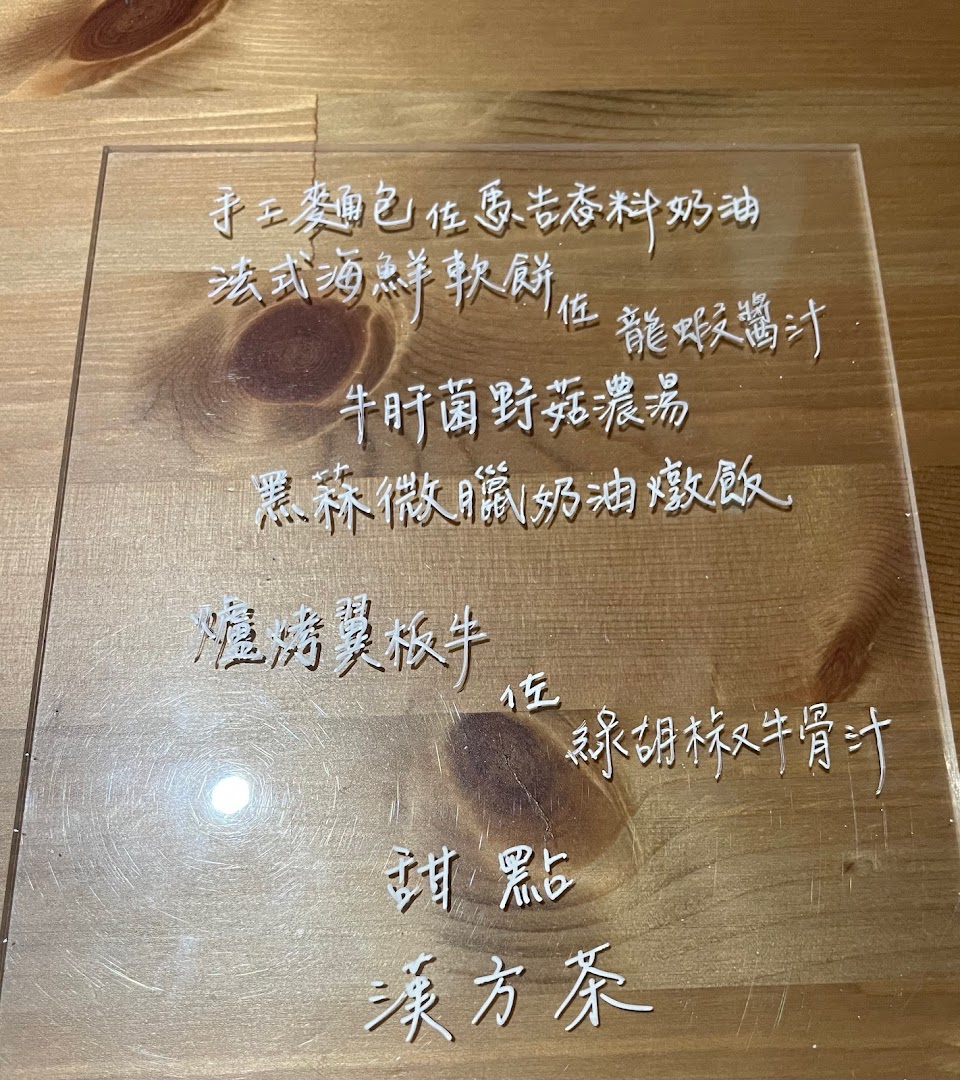 手工麵包佐馬告香料奶油
法式海鮮軟餅佐龍蝦醬汁
牛肝菌野菇濃湯
黑蒜微臘奶油燉飯
爐烤翼板牛
佐
綠胡椒牛骨汁
甜點
漢方茶